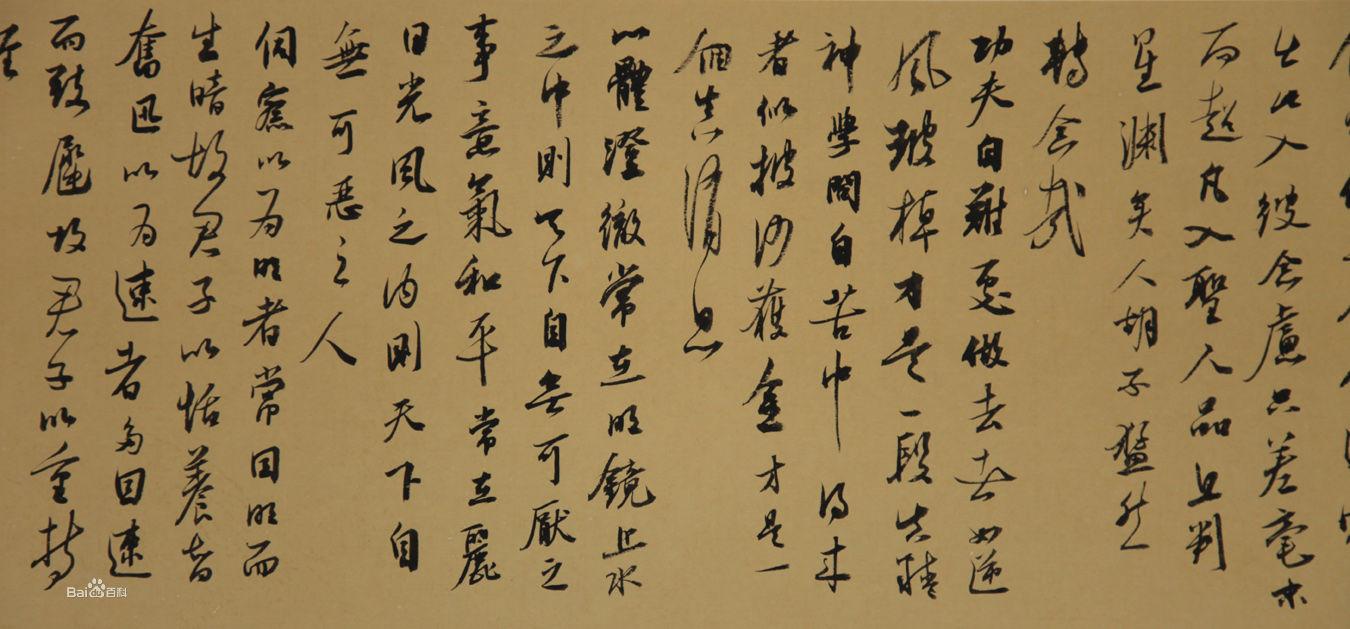 出此入彼念慮只差毫末
而超凡入聖人品且判
星淵矣人胡不猛然
轉念哉
功夫自難處做去者如逆
風鼓棹才是一段真精
神學問自苦中得來
者似披沙獲金才是一
個真消息
心體澄徹常在明鏡止水
之中則天下自無可厭之
事意氣和平常在麗
日光風之內則天下自
無可惡之人
伺察以為明者常因明而
生暗故君子以恬養智
奮迅以為速者多因速
而致遲故君子以重持
輕
Bai百科